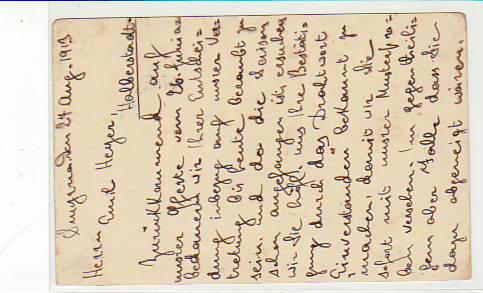 Smyrna den 27 Aug. 1913
Herrn Emil Heyer, Halberstadt.
Zurückkommend auf
unsere Offerte vom 26. Juni a.
bedauern wir Ihrer Entschei=
dung inbezug auf unsere Ver=
tretung bis heute beraubt zu
sein, und da die Saison
schon angefangen ist, ersuchen
wir Sie höfl. uns Ihre Bestäti=
gung durch das Drahtwort
"Einverstanden" bekannt zu
machen, damit wir Sie
sofort mit unserer Musterpro=
ben versehen. Im gegentheili=
gen aber Falle dass Sie
dazu abgeneigt wären.